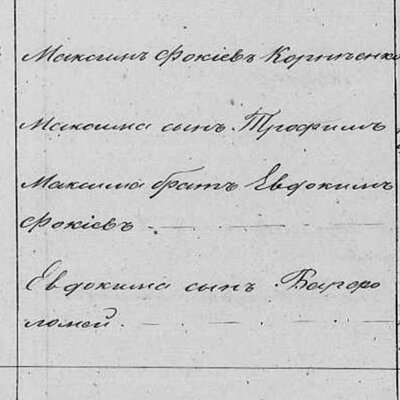 Максимъ Фокіевъ Корниенко
Максима сынъ Трофимъ
Максима братъ Евдокимъ
Фокіевъ
Евдокима сынъ Варфо
ломей.